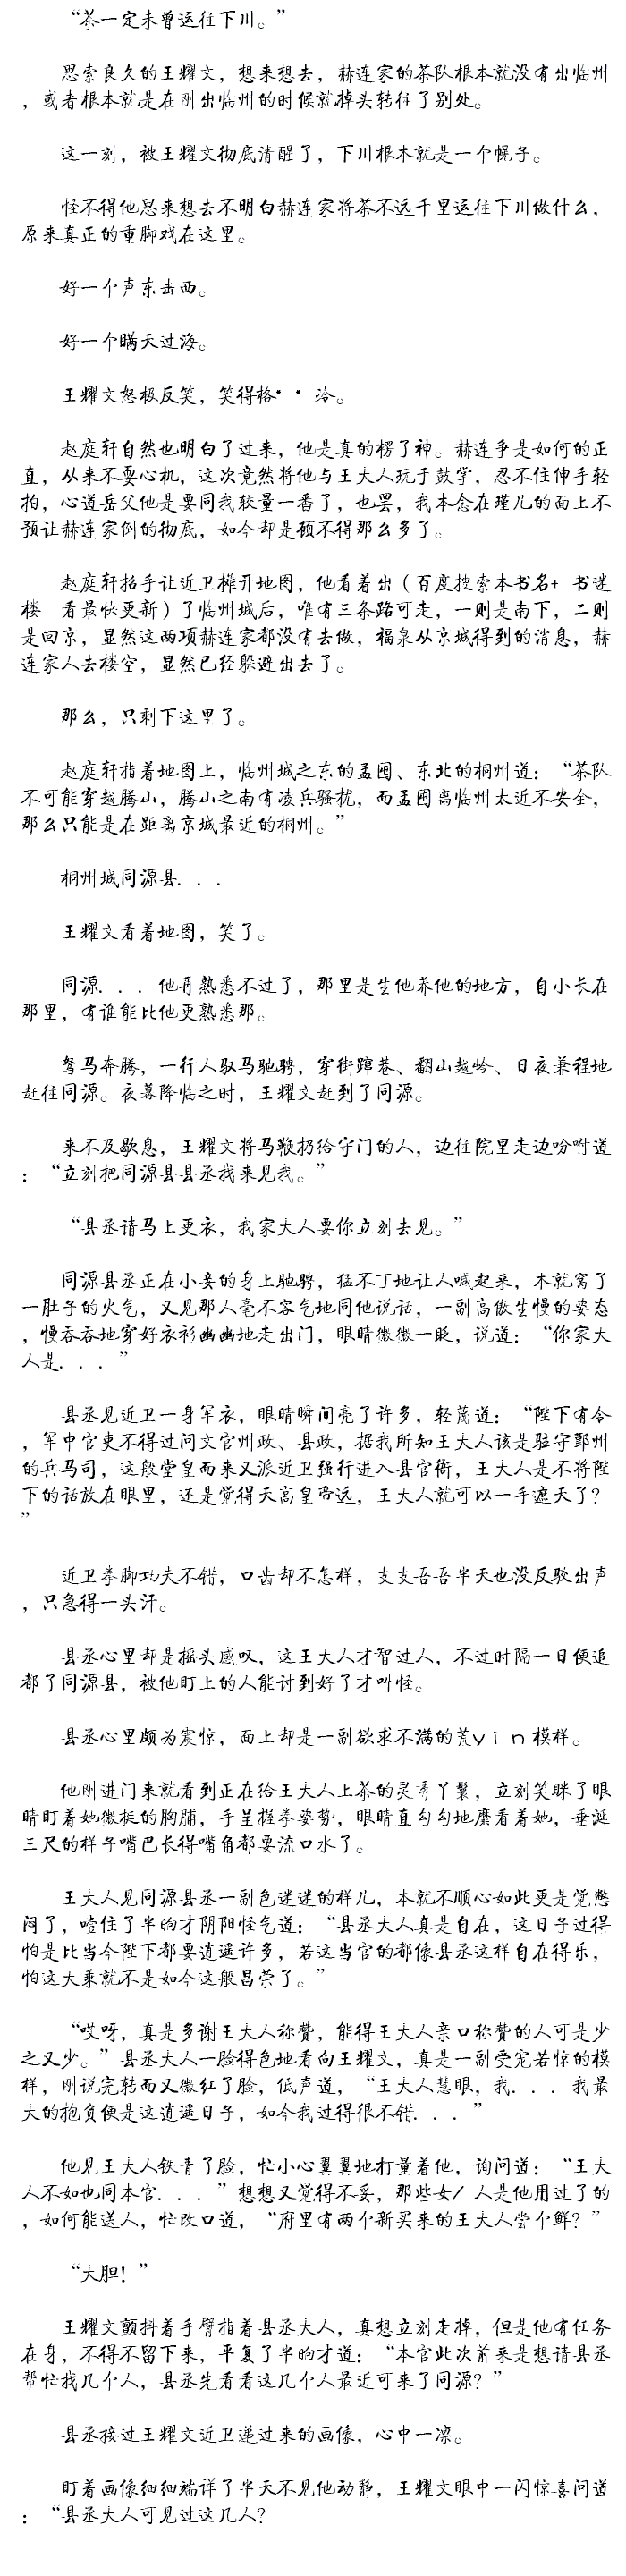 “茶一定未曾运往下川。”
思索良久的王耀文，想来想去，赫连家的茶队根本就没有出临州
，或者根本就是在刚出临州的时候就掉头转往了别处。
这一刻，被王耀文彻底清醒了，下川根本就是一个幌子。
怪不得他思来想去不明白赫连家将茶不远千里运往下川做什么，
原来真正的重脚戏在这里。
好一个声东击西。
好一个瞒天过海。
王耀文怒极反笑，笑得格**冷。
赵庭轩自然也明白了过来，他是真的楞了神。赫连争是如何的正
直，从来不耍心机，这次竟然将他与王大人玩于鼓掌，忍不住伸手轻
拍，心道岳父他是要同我较量一番了，也罢，我本念在瑾儿的面上不
预让赫连家倒的彻底，如今却是顾不得那么多了。
赵庭轩招手让近卫摊开地图，他看着出（百度搜索本书名+ 书迷
楼 看最快更新）了临州城后，唯有三条路可走，一则是南下，二则
是回京，显然这两项赫连家都没有去做，福泉从京城得到的消息，赫
连家人去楼空，显然已经躲避出去了。
那么，只剩下这里了。
赵庭轩指着地图上，临州城之东的孟囤、东北的桐州道：“茶队
不可能穿越腾山，腾山之南有凌兵骚扰，而孟囤离临州太近不安全，
那么只能是在距离京城最近的桐州。”
桐州城同源县...
王耀文看着地图，笑了。
同源...他再熟悉不过了，那里是生他养他的地方，自小长在
那里，有谁能比他更熟悉那。
驽马奔腾，一行人驭马驰骋，穿街蹿巷、翻山越岭、日夜兼程地
赶往同源。夜幕降临之时，王耀文赶到了同源。
来不及歇息，王耀文将马鞭扔给守门的人，边往院里走边吩咐道
：“立刻把同源县县丞找来见我。”
“县丞请马上更衣，我家大人要你立刻去见。”
同源县丞正在小妾的身上驰骋，猛不丁地让人喊起来，本就窝了
一肚子的火气，又见那人毫不客气地同他说话，一副高傲生慢的姿态
，慢吞吞地穿好衣衫幽幽地走出门，眼睛微微一眨，说道：“你家大
人是...”
县丞见近卫一身军衣，眼睛瞬间亮了许多，轻蔑道：“陛下有令
，军中官吏不得过问文官州政、县政，据我所知王大人该是驻守鄞州
的兵马司，这般堂皇而来又派近卫强行进入县官衙，王大人是不将陛
下的话放在眼里，还是觉得天高皇帝远，王大人就可以一手遮天了？
”
近卫拳脚功夫不错，口齿却不怎样，支支吾吾半天也没反驳出声
，只急得一头汗。
县丞心里却是摇头感叹，这王大人才智过人，不过时隔一日便追
都了同源县，被他盯上的人能讨到好了才叫怪。
县丞心里颇为震惊，面上却是一副欲求不满的荒yin模样。
他刚进门来就看到正在给王大人上茶的灵秀丫鬟，立刻笑眯了眼
睛盯着她微挺的胸脯，手呈握拳姿势，眼睛直勾勾地靡看着她，垂涎
三尺的样子嘴巴长得嘴角都要流口水了。
王大人见同源县丞一副色迷迷的样儿，本就不顺心如此更是觉憋
闷了，噎住了半晌才阴阳怪气道：“县丞大人真是自在，这日子过得
怕是比当今陛下都要逍遥许多，若这当官的都像县丞这样自在得乐，
怕这大乘就不是如今这般昌荣了。”
“哎呀，真是多谢王大人称赞，能得王大人亲口称赞的人可是少
之又少。”县丞大人一脸得色地看向王耀文，真是一副受宠若惊的模
样，刚说完转而又微红了脸，低声道，“王大人慧眼，我...我最
大的抱负便是这逍遥日子，如今我过得很不错...”
他见王大人铁青了脸，忙小心翼翼地打量着他，询问道：“王大
人不如也同本官...”想想又觉得不妥，那些女/人是他用过了的
，如何能送人，忙改口道，“府里有两个新买来的王大人尝个鲜？”
“大胆！”
王耀文颤抖着手臂指着县丞大人，真想立刻走掉，但是他有任务
在身，不得不留下来，平复了半晌才道：“本官此次前来是想请县丞
帮忙找几个人，县丞先看看这几个人最近可来了同源？”
县丞接过王耀文近卫递过来的画像，心中一凛。
盯着画像细细端详了半天不见他动静，王耀文眼中一闪惊喜问道
：“县丞大人可见过这几人？